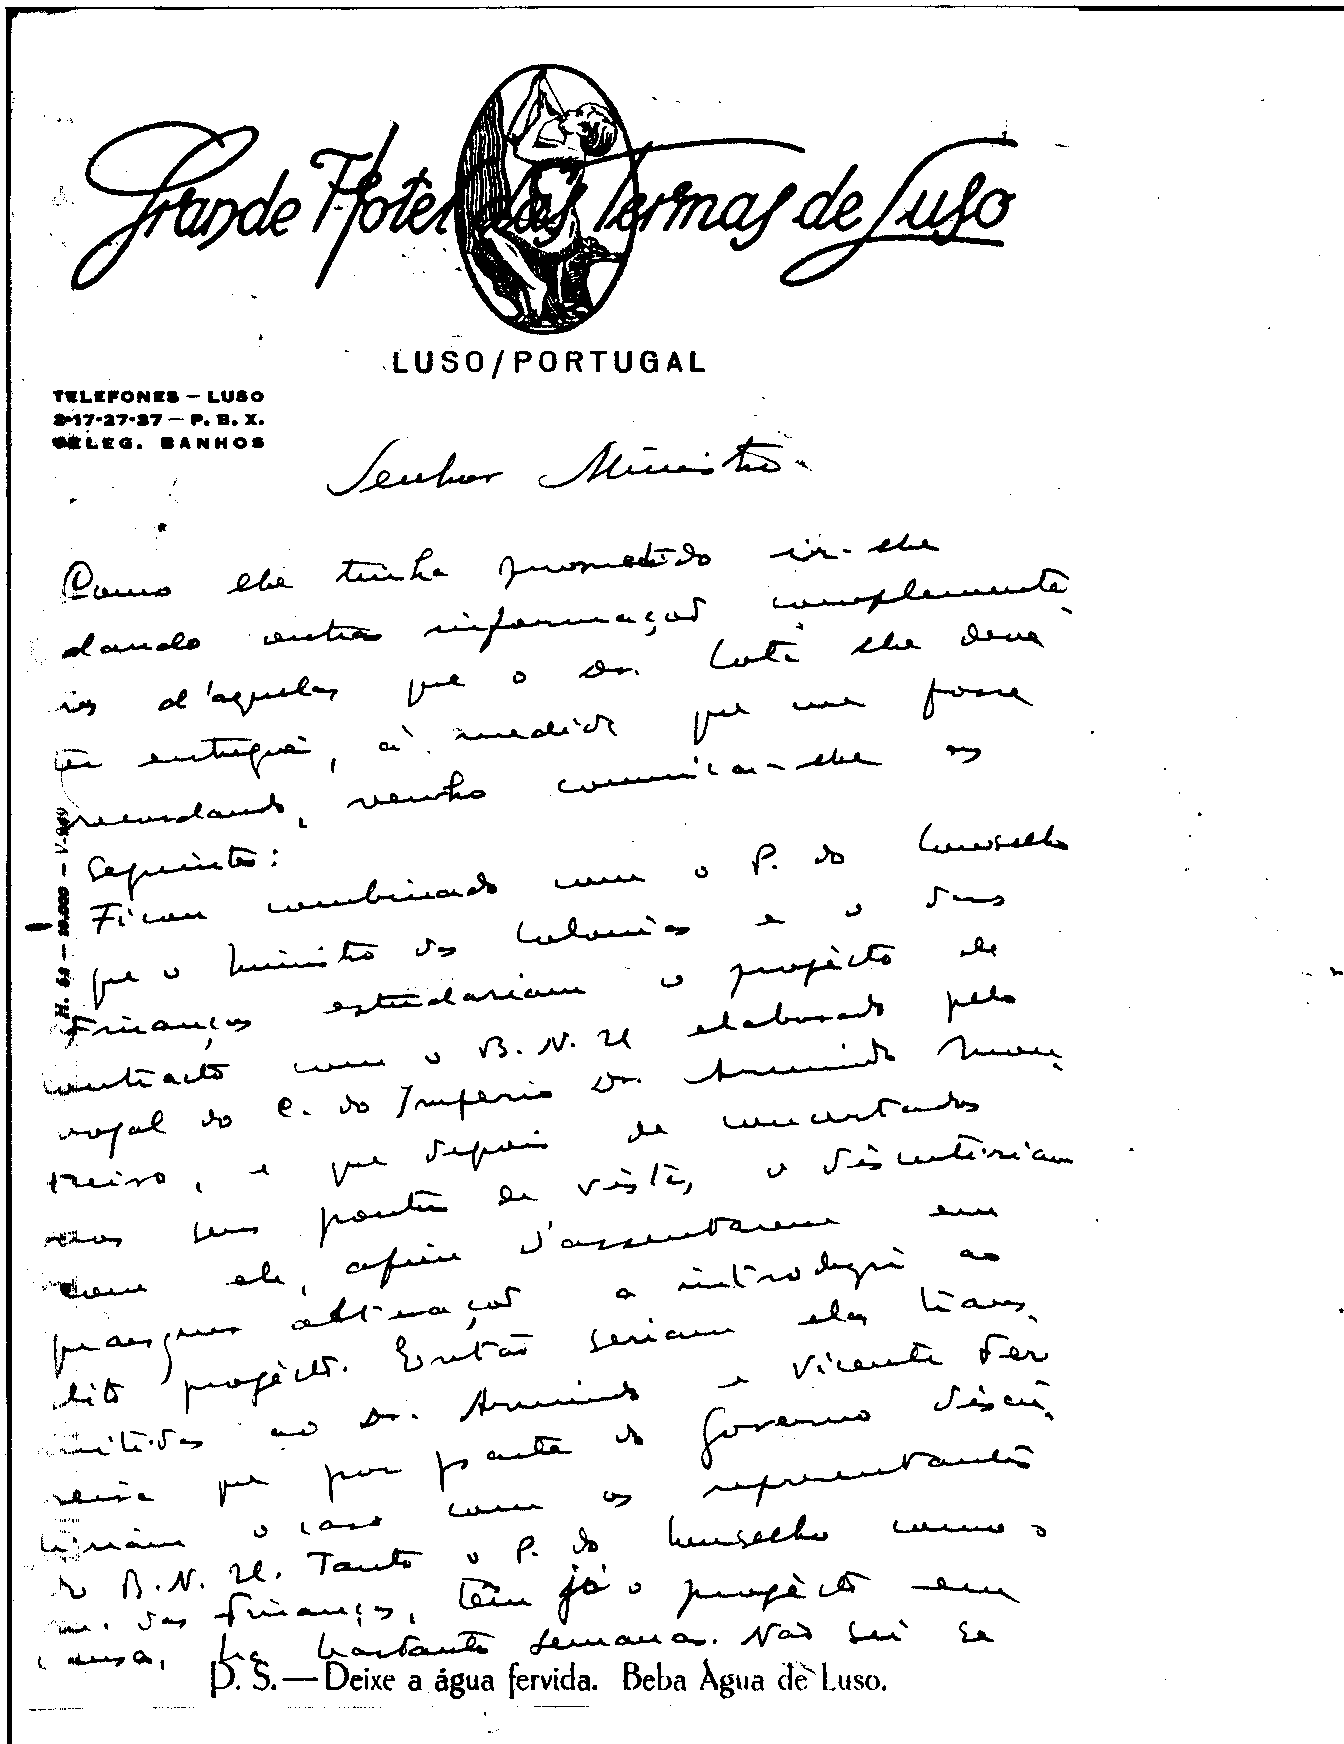 Grande Hotel das Termas de Luso
LUSO/PORTUGAL
TELEFONES — LUSO
2-17-27-37 — P. B. X.
TELEG. BANHOS
Senhor Ministro
Como lhe tinha prometido ir-lhe
dando outras informações complementa
res d'aquelas que o Dr. Cota lhe deve
ter entregue, à medida que me fosse
recordando, venho comunicar-lhe as
seguintes:
Ficou combinado com o P. do Conselho
que o Ministro das Colonias e o das
Finanças estudariam o projécto de
contracto com o B. N. U elaborado pelo
vogal do C. do Imperio Dr. Armindo Mon,
teiro, e que depois de concertados
os seus pontos de vista, o discutiriam
com ele, afim d'assentarem em
quaesquer alterações a introduzir ao
dito projécto. Então seriam elas trans,
mitidas ao Dr. Armindo e Vicente Fer
reira que por parte do Governo discu,
tiriam o caso com os representantes
do B. N. U. Tanto o P. do Conselho como o
m. das Finanças, têm já o projécto em
causa, ha bastantes semanas. Não sei se
P. S. — Deixe a água fervida. Beba Água de Luso.
H. 63 — 10.000 — V-949